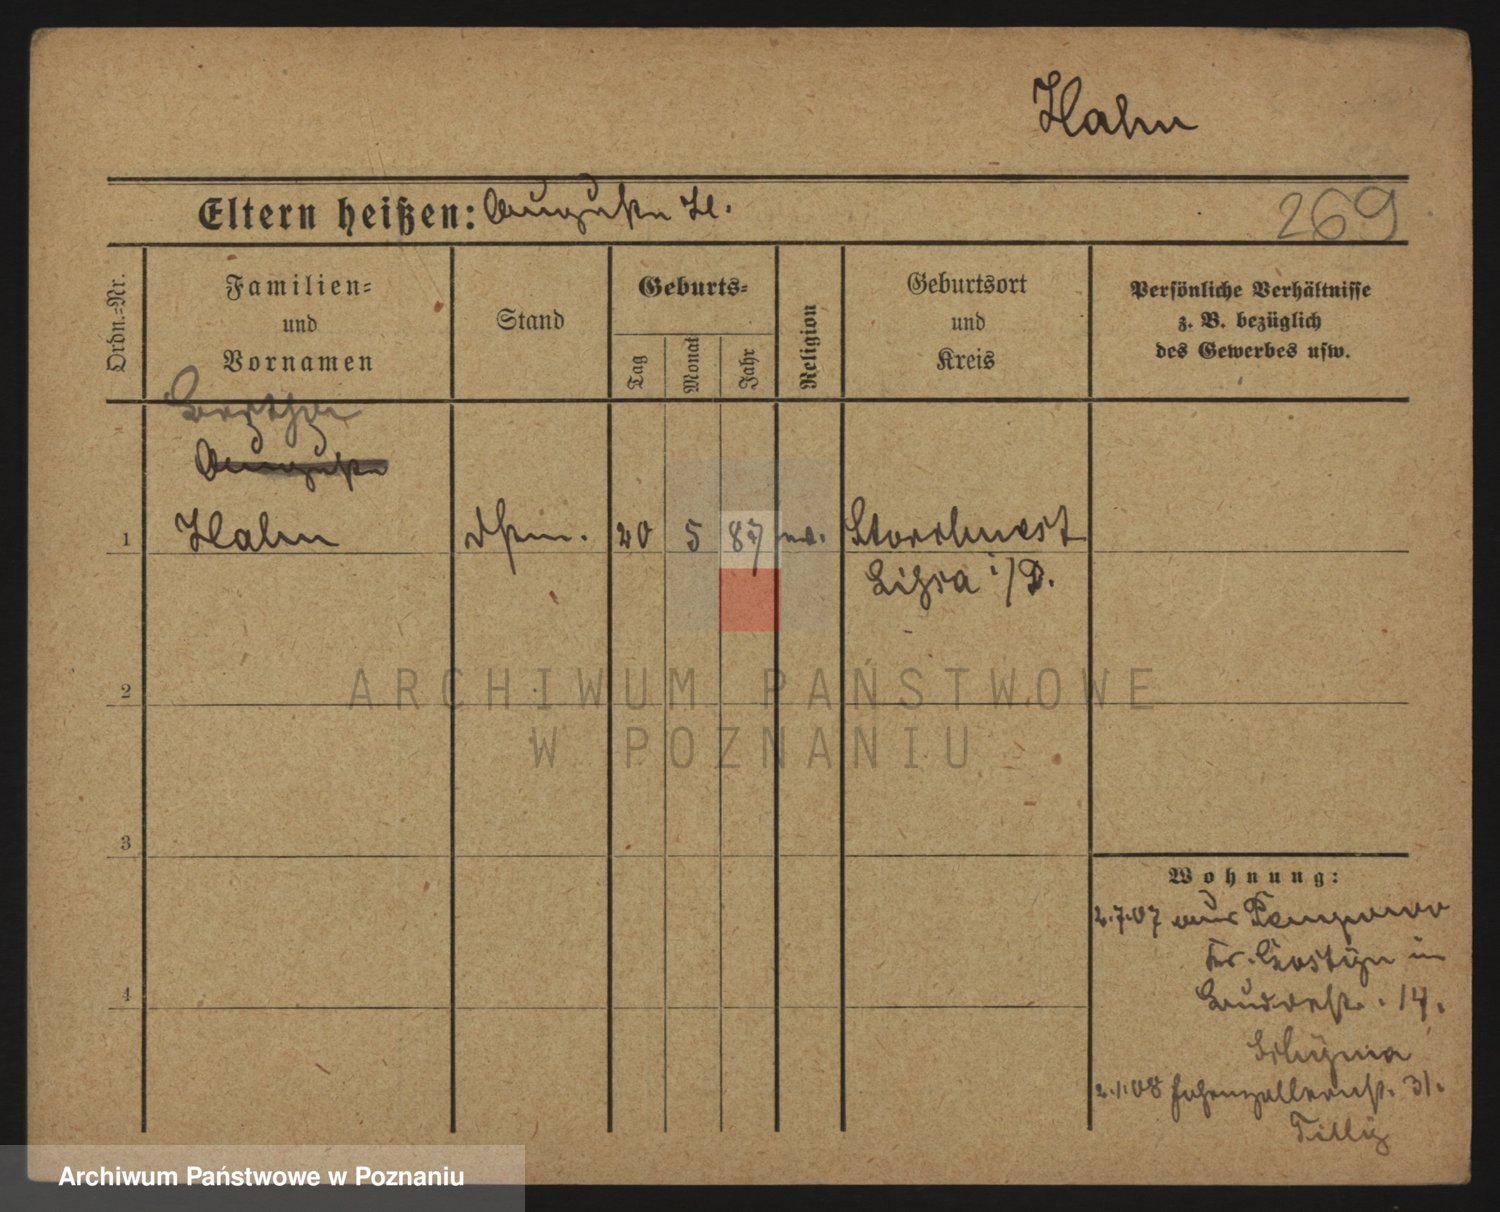 Hahn
Eltern heißen: Auguste H.
269
Ordn.=Nr.
Familien=
und
Vornamen
Stand
Geburts=
Tag
Monat
Jahr
Religion
Geburtsort
und
Kreis
Persönliche Verhältnisse
z. B. bezüglich
des Gewerbes usw.
Bertha
Auguste
1 Hahn Dstm. 20 5 87 ev. Storchnest
Lissa i/P.
2
3
4
Wohnung:
2.7.07 aus
Kr. Gostyn in
14.
2.1.08 Hohenzollernst. 31.
Tilly
ARCHIWUM PAŃSTWOWE
W POZNANIU
Archiwum Państwowe w Poznaniu